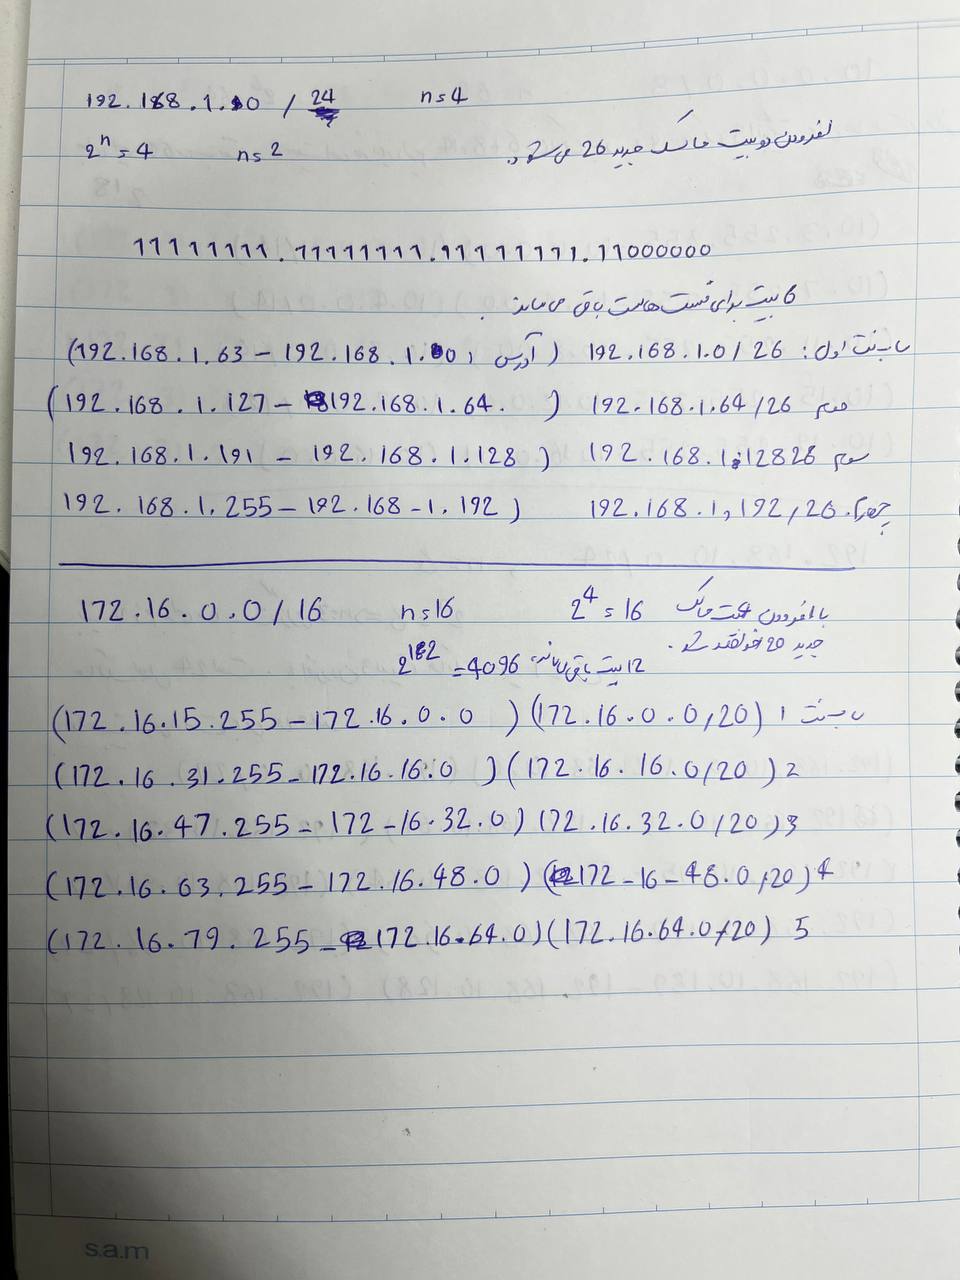 192.168.1.0 / 24 n=4
2^n = 4 n=2 افزودن دو بیت ماسک جدید 26 می‌شود.
11111111.11111111.11111111.11000000
6 بیت برای قسمت هاست باقی می‌ماند.
ساب‌نت اول: 192.168.1.0/26 (آدرس 192.168.1.0 – 192.168.1.63)
دوم 192.168.1.64/26 (192.168.1.127 – 192.168.1.64.)
سوم 192.168.1.12826 192.168.1.191 – 192.168.1.128)
چهارم 192.168.1,192/26 192.168.1.255 – 192.168-1.192)
172.16.0.0/16 n=16 2^4=16 با افزودن بیت ماسک
جدید 20 خواهد شد.
12 بیت باقی 2^12=4096
(172.16.15.255 – 172.16.0.0) (172.16.0.0/20) ساب‌نت 1
(172.16.31.255 – 172.16.16.0) (172.16.16.0/20) 2
(172.16.47.255 – 172-16.32.0) (172.16.32.0/20) 3
(172.16.63.255 – 172.16.48.0) (172-16-48.0/20) 4
(172.16.79.255 – 172.16.64.0) (172.16.64.0/20) 5
s.a.m